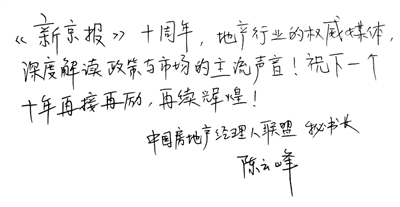 《新京报》十周年，地产行业的权威媒体，
深度解读政策与市场的主流声音！祝下一个
十年再接再励，再续辉煌！
中国房地产经理人联盟 秘书长
陈云峰